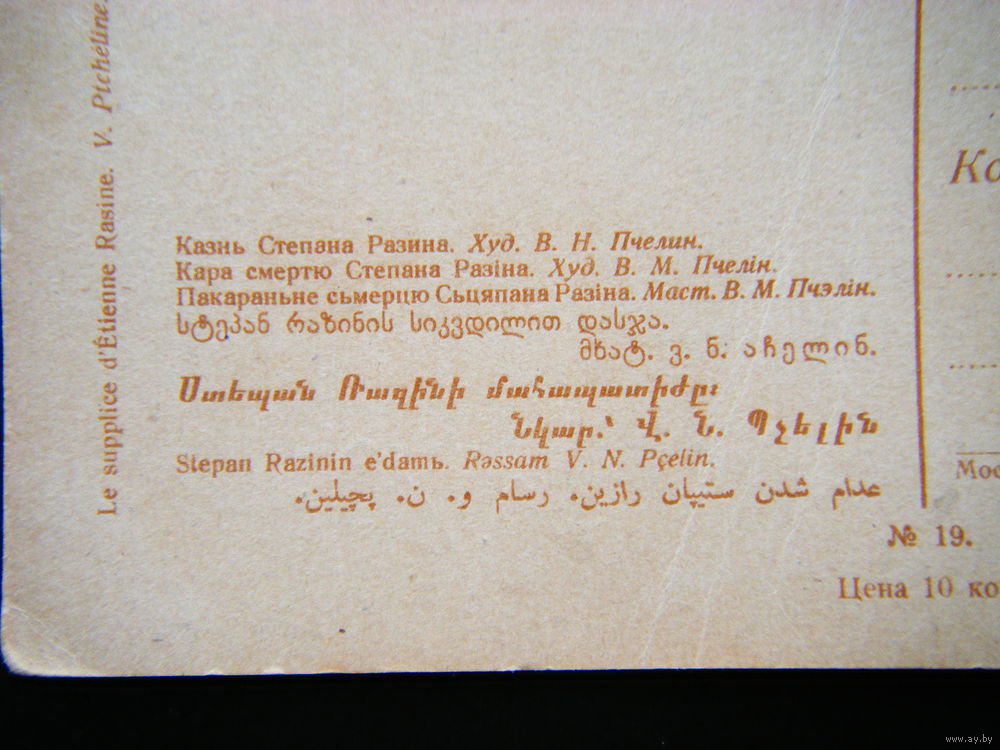 Le supplice d'Étienne Rasine. V. Ptchéline.
Казнь Степана Разина. Худ. В. Н. Пчелин.
Кара смертю Степана Разіна. Худ. В. М. Пчелін.
Пакараньне сьмерцю Сьцяпана Разіна. Маст. В. М. Пчэлін.
სტეპან რაზინის სიკვდილით დასჯა.
მხატ. ვ. ნ. აჩელინ.
Ստեպան Ռազինի մահապատիժը։
Նկար.՝ Վ. Ն. Պչելին
Stepan Razinin e'damь. Rəssam V. N. Pçelin.
عدام شدن ستیپان رازین. رسام و. ن. پچیلین.
Ко
Мос
№ 19.
Цена 10 ко
www.ay.by